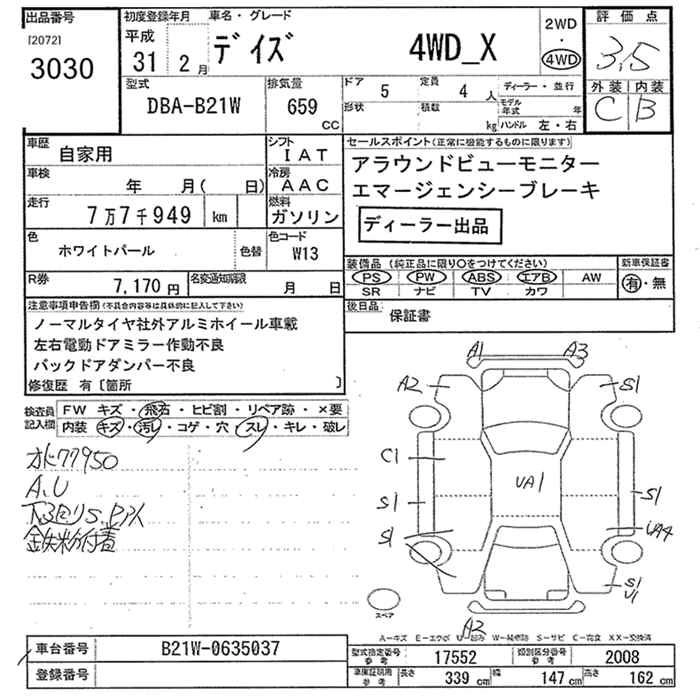 出品番号
[2072]
3030
初度登録年月
平成
31 2 月
車名・グレード
デイズ 4WD_X
2WD
・
4WD
評価点
3.5
外装 内装
C B
型式
DBA-B21W
排気量
659
cc
ドア 5
定員 4 人
形状
積載 kg
ディーラー・並行
モデル年式 年
ハンドル 左・右
車歴
自家用
シフト
IAT
車検
年 月( 日)
冷房
AAC
走行
7万7千949 km
燃料
ガソリン
色
ホワイトパール
色替
色コード
W13
R券
7,170円
名変通知期限
月 日
セールスポイント(正常に機能するものに限ります)
アラウンドビューモニター
エマージェンシーブレーキ
ディーラー出品
装備品 (純正品に限り〇をつけてください)
PS PW ABS エアB AW
SR ナビ TV カワ
新車保証書
有・無
後日品
保証書
注意事項申告欄(不具合内容等は具体的に記入して下さい)
ノーマルタイヤ社外アルミホイール車載
左右電動ドアミラー作動不良
バックドアダンパー不良
修復歴 有〔箇所 〕
検査員
記入欄
FW キズ・飛石・ヒビ割・リペア跡・×要
内装 キズ・汚レ・コゲ・穴・スレ・キレ・破レ
77950
A.U
下廻りS.
鉄粉付着
A1 A3
A2 S1
C1
UA1
S1 S1
S1 UA4
S1
U1
A2
スペア
A-キズ E-エクボ U-凹み W-補修跡 S-サビ C-腐食 XX-交換済
車台番号
B21W-0635037
登録番号
型式指定番号
参考
17552
類別区分番号
参考
2008
車庫証明用
参考
長さ 339 cm
幅 147 cm
高さ 162 cm